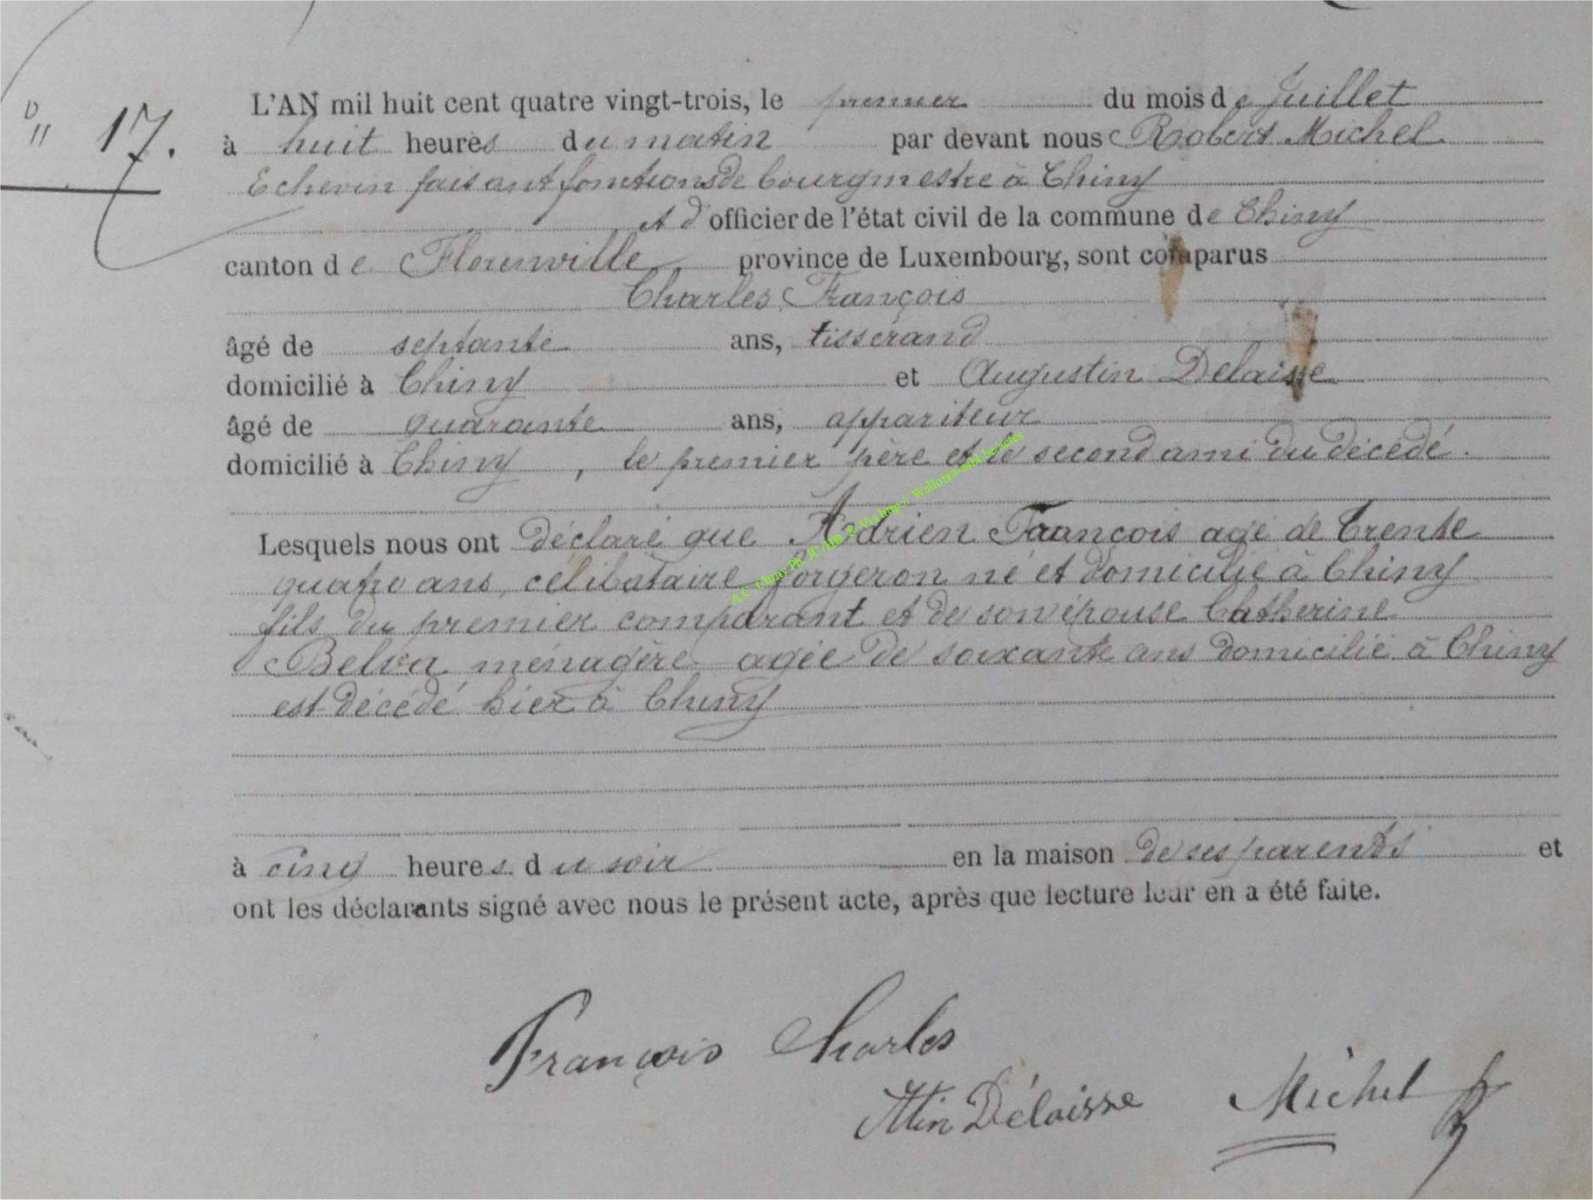 D
"
17.
L'AN mil huit cent quatre vingt-trois, le premier du mois de Juillet
à huit heures du matin par devant nous Robert Michel
Echevin faisant fonctions de bourgmestre à Chiny
et d'officier de l'état civil de la commune de Chiny
canton de Florenville province de Luxembourg, sont comparus
Charles François
âgé de septante ans, tisserand
domicilié à Chiny et Augustin Delaisse
âgé de quarante ans, appariteur
domicilié à Chiny, le premier père et le second ami du décédé.
Lesquels nous ont déclaré que Adrien François agé de trente
quatre ans, célibataire forgeron né et domicilié à Chiny
fils du premier comparant et de son épouse Catherine
Belva ménagère agée de soixante ans domicilié à Chiny
est décédé hier à Chiny
à cinq heures du soir en la maison de ses parents et
ont les déclarants signé avec nous le présent acte, après que lecture leur en a été faite.
François Charles
Atin Délaisse Michel